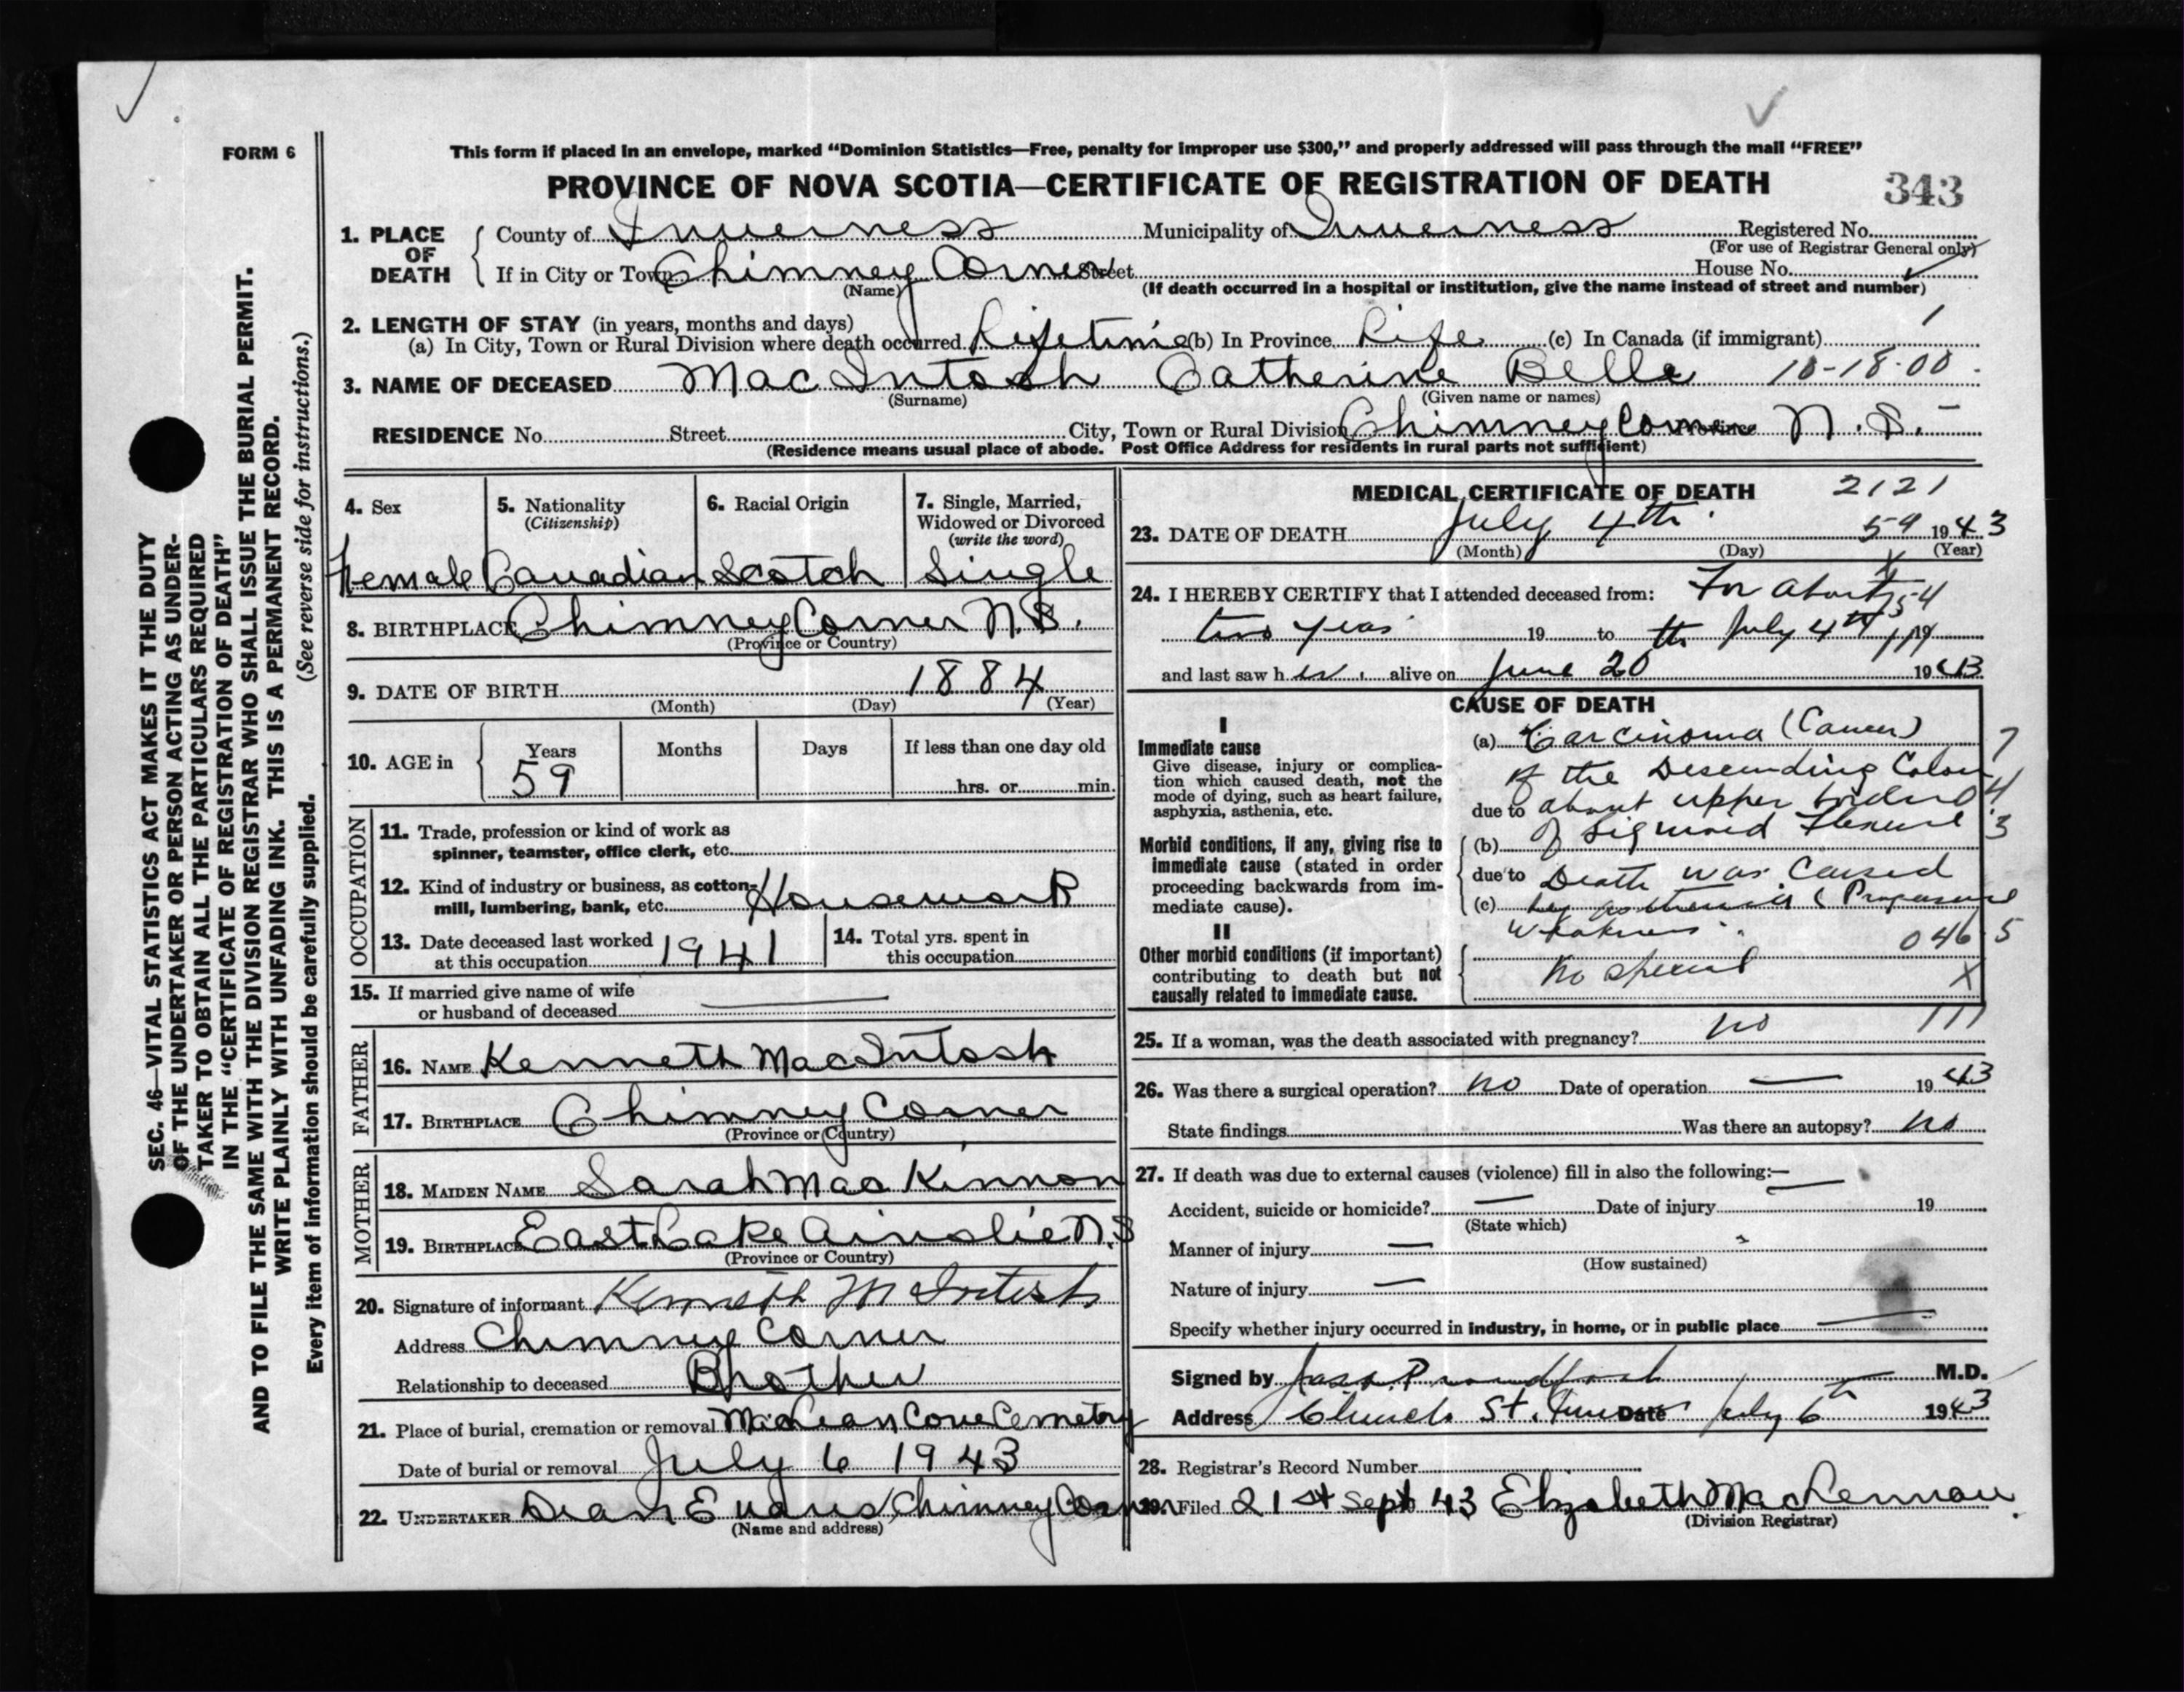 FORM 6
This form if placed in an envelope, marked “Dominion Statistics—Free, penalty for improper use $300,” and properly addressed will pass through the mail “FREE”
PROVINCE OF NOVA SCOTIA—CERTIFICATE OF REGISTRATION OF DEATH
343
1. PLACE OF DEATH
County of Inverness Municipality of Inverness Registered No.
(For use of Registrar General only)
If in City or Town Chimney Corner Street House No.
(Name) (If death occurred in a hospital or institution, give the name instead of street and number)
2. LENGTH OF STAY (in years, months and days)
(a) In City, Town or Rural Division where death occurred Lifetime (b) In Province Life (c) In Canada (if immigrant)
3. NAME OF DECEASED MacIntosh Catherine Bella 10-18-00
(Surname) (Given name or names)
RESIDENCE No. Street City, Town or Rural Division Chimney Corner Province N.S.
(Residence means usual place of abode. Post Office Address for residents in rural parts not sufficient)
4. Sex
Female
5. Nationality
(Citizenship)
Canadian
6. Racial Origin
Scotch
7. Single, Married,
Widowed or Divorced
(write the word)
Single
8. BIRTHPLACE Chimney Corner N.S.
(Province or Country)
9. DATE OF BIRTH 1884
(Month) (Day) (Year)
10. AGE in
Years Months Days If less than one day old
59 hrs. or min.
OCCUPATION
11. Trade, profession or kind of work as
spinner, teamster, office clerk, etc.
12. Kind of industry or business, as cotton-
mill, lumbering, bank, etc. Housework
13. Date deceased last worked
at this occupation 1941
14. Total yrs. spent in
this occupation
15. If married give name of wife
or husband of deceased
FATHER
16. NAME Kenneth MacIntosh
17. BIRTHPLACE Chimney Corner
(Province or Country)
MOTHER
18. MAIDEN NAME Sarah MacKinnon
19. BIRTHPLACE East Lake Ainslie N.S
(Province or Country)
20. Signature of informant Kenneth McIntosh
Address Chimney Corner
Relationship to deceased Brother
21. Place of burial, cremation or removal MacLean Cove Cemetery
Date of burial or removal July 6 1943
22. UNDERTAKER Chimney Corner
(Name and address)
MEDICAL CERTIFICATE OF DEATH 2121
23. DATE OF DEATH July 4th 59 1943
(Month) (Day) (Year)
24. I HEREBY CERTIFY that I attended deceased from: For about 54
two years 19 to the July 4th 19
and last saw her alive on June 20 1943
CAUSE OF DEATH
I
Immediate cause
Give disease, injury or complica-
tion which caused death, not the
mode of dying, such as heart failure,
asphyxia, asthenia, etc.
Morbid conditions, if any, giving rise to
immediate cause (stated in order
proceeding backwards from im-
mediate cause).
II
Other morbid conditions (if important)
contributing to death but not
causally related to immediate cause.
(a) Carcinoma (Cancer) 7
of the Descending Colon 4
due to about upper border
(b) of Sigmoid Flexure 3
due to Death was Caused
(c) by asthenia (Progressive
Weakness 046.5
No special X
25. If a woman, was the death associated with pregnancy? no 111
26. Was there a surgical operation? no Date of operation 1943
State findings Was there an autopsy? no
27. If death was due to external causes (violence) fill in also the following:—
Accident, suicide or homicide? Date of injury 19
(State which)
Manner of injury
(How sustained)
Nature of injury
Specify whether injury occurred in industry, in home, or in public place
Signed by M.D.
Address Church St. Date July 6th 1943
28. Registrar's Record Number
29. Filed 21st Sept 43 Elizabeth MacLennan
(Division Registrar)
SEC. 46—VITAL STATISTICS ACT MAKES IT THE DUTY
OF THE UNDERTAKER OR PERSON ACTING AS UNDER-
TAKER TO OBTAIN ALL THE PARTICULARS REQUIRED
IN THE “CERTIFICATE OF REGISTRATION OF DEATH”
AND TO FILE THE SAME WITH THE DIVISION REGISTRAR WHO SHALL ISSUE THE BURIAL PERMIT.
WRITE PLAINLY WITH UNFADING INK. THIS IS A PERMANENT RECORD.
Every item of information should be carefully supplied. (See reverse side for instructions.)